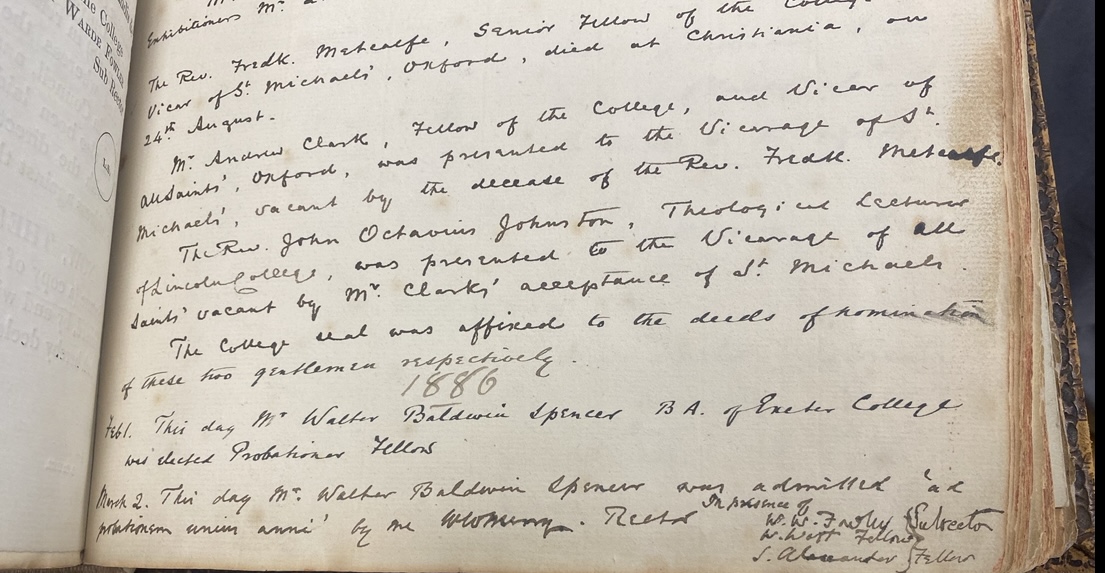 he College
WARDE FOWLER
Sub Recto
La
Exhibitioners Mr.
The Rev. Fredk. Metcalfe, Senior Fellow of the College
Vicar of St. Michaels', Oxford, died at Christiania, on
24th August.
Mr Andrew Clark, Fellow of the College, and Vicar of
All Saints', Oxford, was presented to the Vicarage of St.
Michaels', vacant by the decease of the Rev. Fredk. Metcalfe.
The Rev. John Octavius Johnston, Theological Lecturer
of Lincoln College, was presented to the Vicarage of All
Saints' vacant by Mr. Clarks' acceptance of St. Michaels.
The College seal was affixed to the deeds of nomination
of these two gentlemen respectively.
1886
Feb 1. This day Mr Walter Baldwin Spencer B A. of Exeter College
was elected Probationer Fellow
March 2. This day Mr. Walter Baldwin Spencer was admitted "ad
probationem unius anni' by me . Rector
In presence of
W. W. Fowler Subrector
W. West Fellow
S. Alexander Fellow